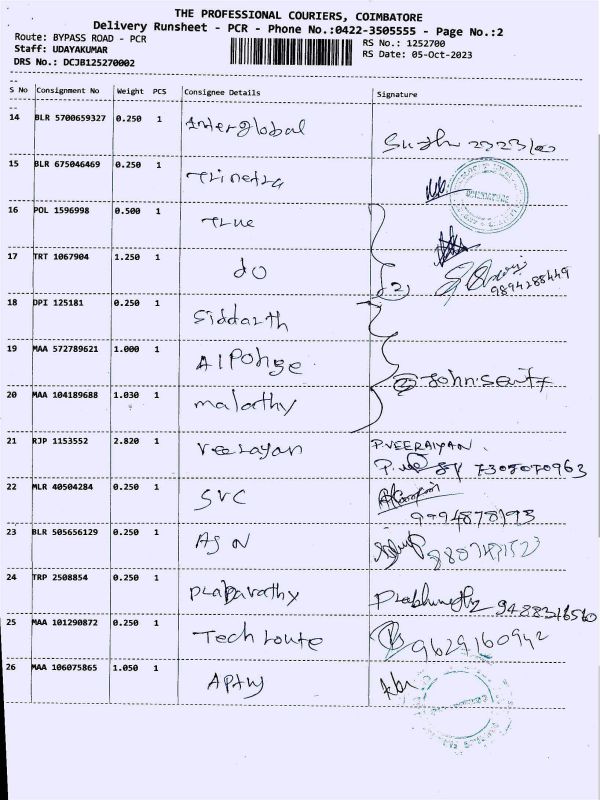 THE PROFESSIONAL COURIERS, COIMBATORE
Delivery Runsheet - PCR - Phone No.:0422-3505555 - Page No.:2
Route: BYPASS ROAD - PCR
RS No.: 1252700
Staff: UDAYAKUMAR
RS Date: 05-Oct-2023
DRS No.: DCJB125270002
S No Consignment No Weight PCS Consignee Details Signature
14 BLR 5700659327 0.250 1 Interglobal
15 BLR 675046469 0.250 1 Trinetra
16 POL 1596998 0.500 1 True
17 TRT 1067904 1.250 1 do
(2) 9894288449
18 DPI 125181 0.250 1 Siddarth
19 MAA 572789621 1.000 1
20 MAA 104189688 1.030 1 malarthy
21 RJP 1153552 2.820 1 Veerayan P.VEERAIYAN.
7305070963
22 MLR 40504284 0.250 1 SVC
9994878193
23 BLR 505656129 0.250 1 ASN
24 TRP 2508854 0.250 1
25 MAA 101290872 0.250 1 Tech route 9629160942
26 MAA 106075865 1.050 1